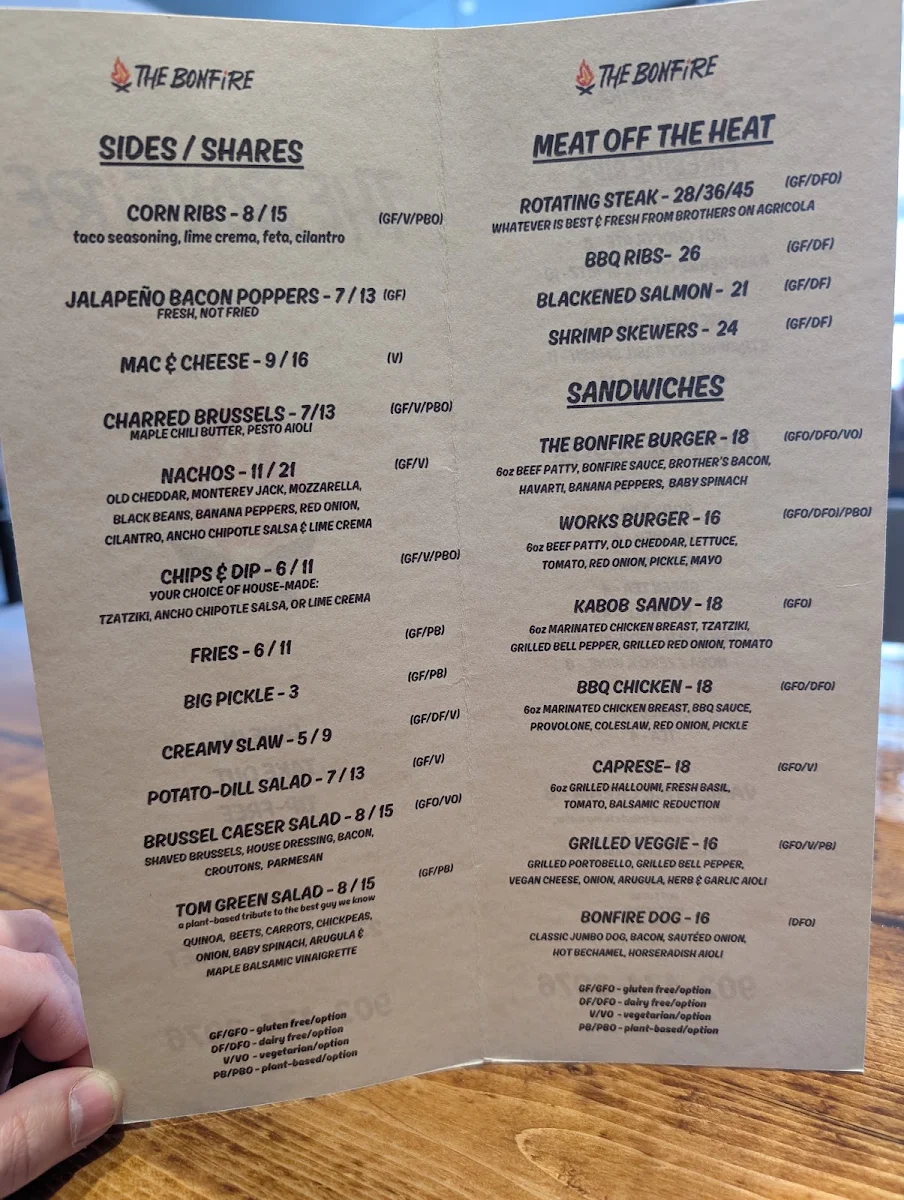 THE BONFIRE
SIDES / SHARES
CORN RIBS - 8 / 15 (GF/V/PBO)
taco seasoning, lime crema, feta, cilantro
JALAPEÑO BACON POPPERS - 7 / 13 (GF)
FRESH, NOT FRIED
MAC & CHEESE - 9 / 16 (V)
CHARRED BRUSSELS - 7/13 (GF/V/PBO)
MAPLE CHILI BUTTER, PESTO AIOLI
NACHOS - 11 / 21 (GF/V)
OLD CHEDDAR, MONTEREY JACK, MOZZARELLA,
BLACK BEANS, BANANA PEPPERS, RED ONION,
CILANTRO, ANCHO CHIPOTLE SALSA & LIME CREMA
CHIPS & DIP - 6 / 11 (GF/V/PBO)
YOUR CHOICE OF HOUSE-MADE:
TZATZIKI, ANCHO CHIPOTLE SALSA, OR LIME CREMA
FRIES - 6 / 11 (GF/PB)
BIG PICKLE - 3 (GF/PB)
CREAMY SLAW - 5 / 9 (GF/DF/V)
POTATO-DILL SALAD - 7 / 13 (GF/V)
BRUSSEL CAESER SALAD - 8 / 15 (GFO/VO)
SHAVED BRUSSELS, HOUSE DRESSING, BACON,
CROUTONS, PARMESAN
TOM GREEN SALAD - 8 / 15 (GF/PB)
a plant-based tribute to the best guy we know
QUINOA, BEETS, CARROTS, CHICKPEAS,
ONION, BABY SPINACH, ARUGULA &
MAPLE BALSAMIC VINAIGRETTE
GF/GFO - gluten free/option
DF/DFO - dairy free/option
V/VO - vegetarian/option
PB/PBO - plant-based/option
THE BONFIRE
MEAT OFF THE HEAT
ROTATING STEAK - 28/36/45 (GF/DFO)
WHATEVER IS BEST & FRESH FROM BROTHERS ON AGRICOLA
BBQ RIBS- 26 (GF/DF)
BLACKENED SALMON - 21 (GF/DF)
SHRIMP SKEWERS - 24 (GF/DF)
SANDWICHES
THE BONFIRE BURGER - 18 (GFO/DFO/VO)
6oz BEEF PATTY, BONFIRE SAUCE, BROTHER'S BACON,
HAVARTI, BANANA PEPPERS, BABY SPINACH
WORKS BURGER - 16 (GFO/DFO)/PBO)
6oz BEEF PATTY, OLD CHEDDAR, LETTUCE,
TOMATO, RED ONION, PICKLE, MAYO
KABOB SANDY - 18 (GFO)
6oz MARINATED CHICKEN BREAST, TZATZIKI,
GRILLED BELL PEPPER, GRILLED RED ONION, TOMATO
BBQ CHICKEN - 18 (GFO/DFO)
6oz MARINATED CHICKEN BREAST, BBQ SAUCE,
PROVOLONE, COLESLAW, RED ONION, PICKLE
CAPRESE- 18 (GFO/V)
6oz GRILLED HALLOUMI, FRESH BASIL,
TOMATO, BALSAMIC REDUCTION
GRILLED VEGGIE - 16 (GFO/V/PB)
GRILLED PORTOBELLO, GRILLED BELL PEPPER,
VEGAN CHEESE, ONION, ARUGULA, HERB & GARLIC AIOLI
BONFIRE DOG - 16 (DFO)
CLASSIC JUMBO DOG, BACON, SAUTÉED ONION,
HOT BECHAMEL, HORSERADISH AIOLI
GF/GFO - gluten free/option
DF/DFO - dairy free/option
V/VO - vegetarian/option
PB/PBO - plant-based/option